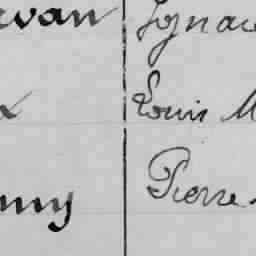 rvan Ignace
x Louis M
nny Pierre